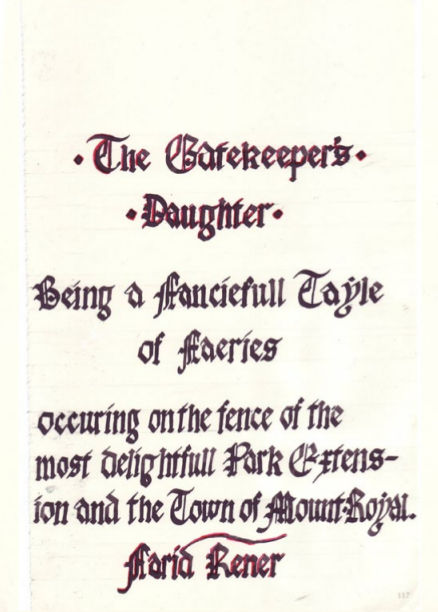 · The Gatekeeper's ·
· Daughter ·
Being a Fanciefull Tayle
of Faeries
occuring on the fence of the
most delightfull Park Extens-
ion and the Town of Mount-Royal.
Farid Rener
117